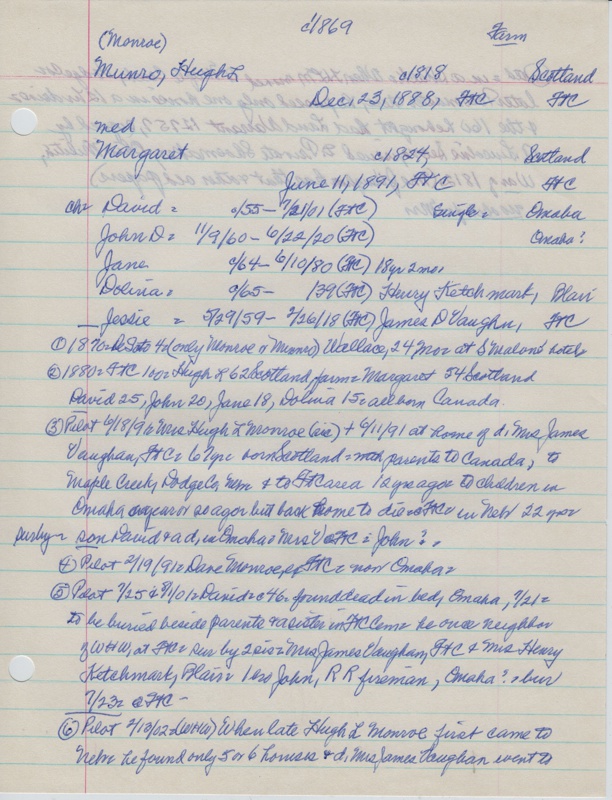 c1869
(Monroe) Farm
Munro, Hugh L c1818, Scotland
Dec. 23, 1888, FtC FtC
med
Margaret c1824, Scotland
June 11, 1891, FtC FtC
ch= David = c/55- 7/21/01 (FtC) Single = Omaha
John D = 11/9/60 - 6/22/20 (FtC) Omaha?
Jane c/64- 6/10/80 (FtC) 18yr 2mos
Dolina = c/65- /39 (FtC) Henry Ketchmark, Blair
Jessie = 5/29/59- 2/26/18 (FtC) James D Vaughn, FtC
① 1870= DeSoto 42 (only Monroe or Munro) Wallace, 24 Mo= at S Malone's hotel
② 1880= FtC 100= Hugh L 62 Scotland, farm= Margaret 54 Scotland
David 25, John 20, Jane 18, Dolina 15= all born Canada.
③ Pilot 6/18/91= Mrs Hugh L Monroe (sic) + 6/11/91 at home of d, Mrs James
Vaughan, FtC= 67yr born Scotland= with parents to Canada, to
Maple Creek, Dodge Co, Nebr & to FtC area 12 yrs ago to children in
Omaha a year or so ago but back home to die= FtC= in Nebr 22 yrs
sur by= son David & a d, in Omaha= Mrs V @ FtC = John? =
④ Pilot 2/19/91= Dave Monroe, of FtC= now Omaha=
⑤ Pilot 7/25 & 8/1/01= David= c46= found dead in bed, Omaha, 7/21=
to be buried beside parents & a sister in FtC Cem= he once neighbor
of WHW, at FtC= sur by 2 sis= Mrs James Vaughan, FtC & Mrs Henry
Ketchmark, Blair= 1 bro John, R R fireman, Omaha? = bur
7/23= @ FtC-
⑥ Pilot 2/13/02= (WHW) When late Hugh L Monroe first came to
Nebr he found only 5 or 6 houses & d, Mrs James Vaughan went to